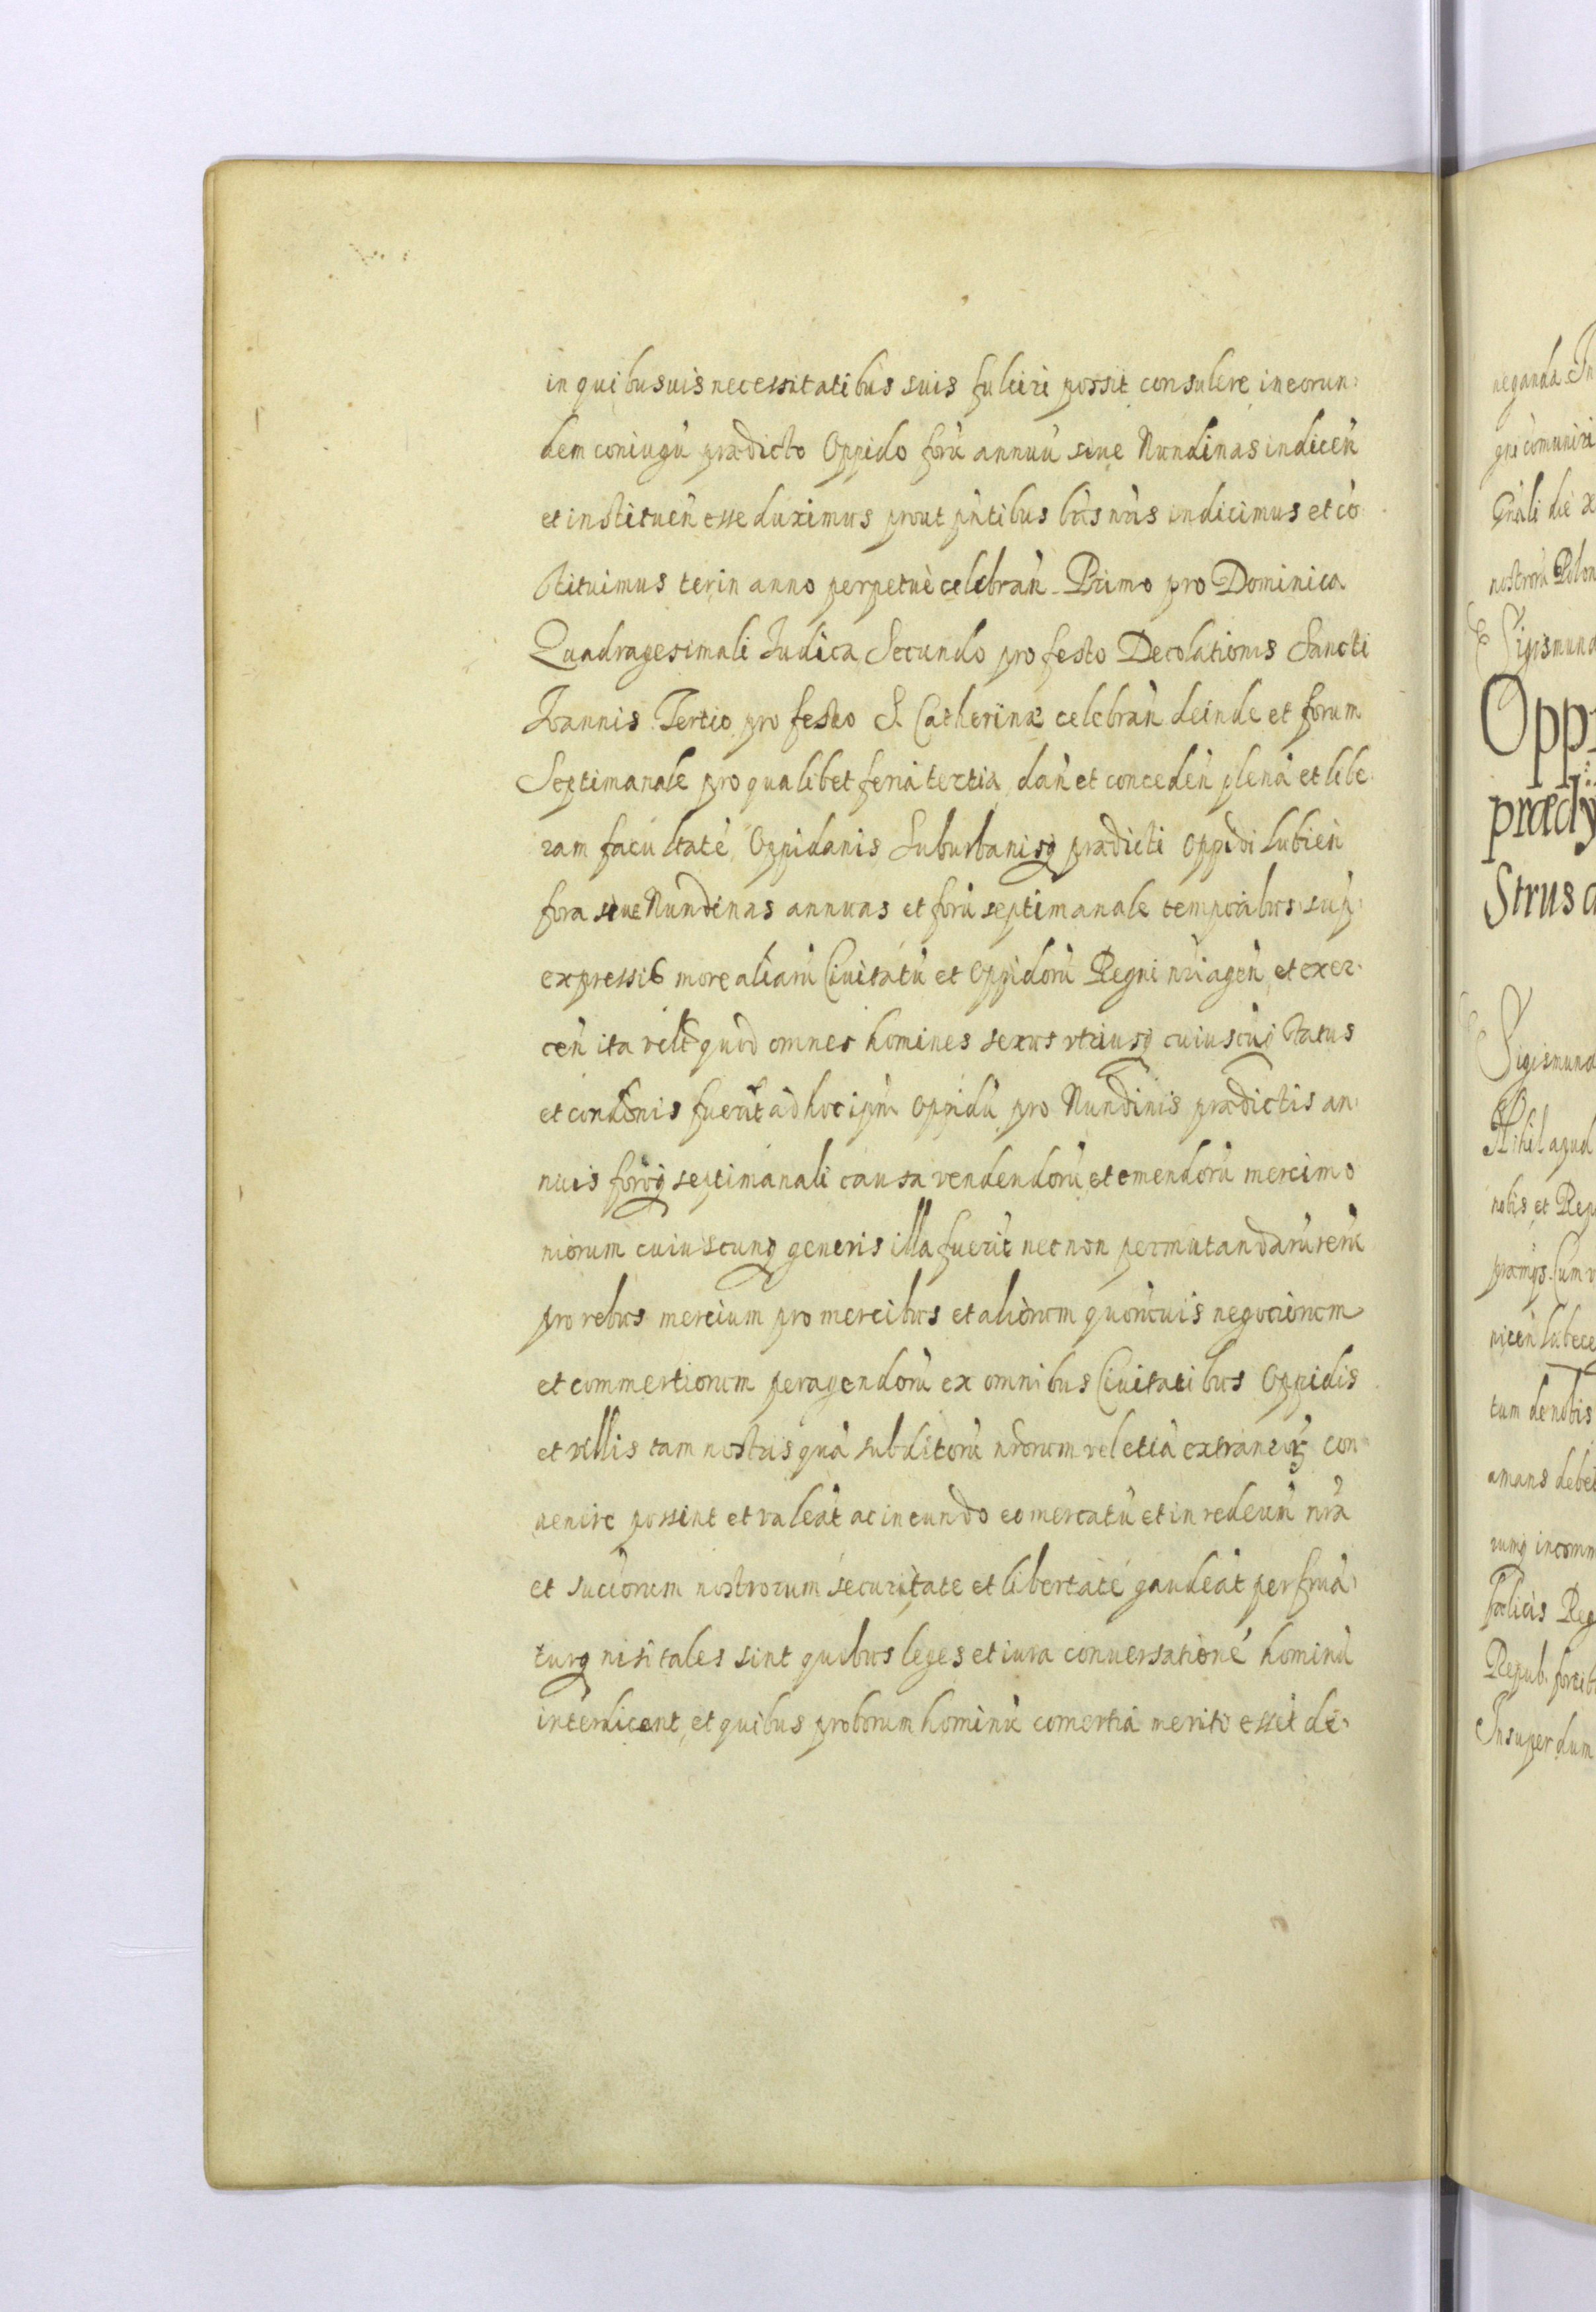 in quibusuis necessitatibus suis fulciri possit consulere in eorun:
dem coniugū prædicto Oppido forū annuū siue Nundinas indiceñ
et instituēn esse duximus prout pñtibus lrīs nrīs indicimus et cō
stituimus ter in anno perpetuè celebrañ. Primo pro Dominica
Quadragesimali Iudica, Secundo pro festo Decolationis Sancti
Ioannis. Tertio pro festo S. Catherinæ celebrañ deinde et forum
Septimanale pro qualibet feria tertia, dañ et concedeñ plenā et libe:
ram facultatē, Oppidanis Suburbanisq prædicti Oppidi Lubień
fora siue Nundinas annuas et forū septimanale temporibus sup:
expressis more aliarū Ciuitatū et Oppidorū Regni nri ageñ, et exer:
ceñ ita vidlt quod omnes homines sexus vtriusq cuiuscūq status
et condōnis fuerīt ad hoc ipm̄ Oppidū pro Nundinis prædictis an:
nuis foroq septimanali causa vendendorū et emendorū mercimo
niorum cuiuscunq generis illa fuerīt nec non permutandarū rerū
pro rebus mercium pro mercibus et aliorum quorūuis negociorum
et commertiorum peragendorū ex omnibus Ciuitatibus Oppidis
et villis tam nostris quā subditorū nrorum vel etiā extraneorꝝ con
uenire possint et valeāt ac in eundo eo mercatū et in redeūn nrā
et succorum nostrorum securitate et libertatē gaudeāt perfruā:
turq nisi tales sint quibus leges et iura conuersationē hominū
interdicant, et quibus proborum hominū comertia merito esset de:
neganda. In
gni comuniri
Gnāli die x
nostrorū Polon
Sigismund
Opp
prædy
Strus
Sigismund
Nihil apud
nobis et Rep
præmys. Cum
nicen Lubece
tum de nobis
amans debet
rumq incomm
fœlicis Reg
Repub. fortib
Insuper dum